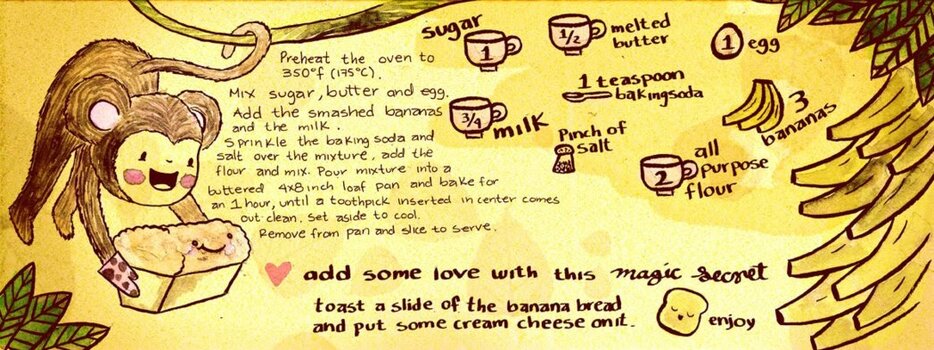 Preheat the oven to
350°f (175°C).
Mix sugar, butter and egg.
Add the smashed bananas
and the milk.
Sprinkle the baking soda and
salt over the mixture, add the
flour and mix. Pour mixture into a
buttered 4x8 inch loaf pan and bake for
an 1 hour, until a toothpick inserted in center comes
out clean. Set aside to cool.
Remove from pan and slice to serve.
sugar
1
1/2
melted
butter
1 egg
1 teaspoon
bakingsoda
3/4
milk
Pinch of
salt
3
bananas
2
all
purpose
flour
add some love with this magic secret
toast a slide of the banana bread
and put some cream cheese on it.
enjoy